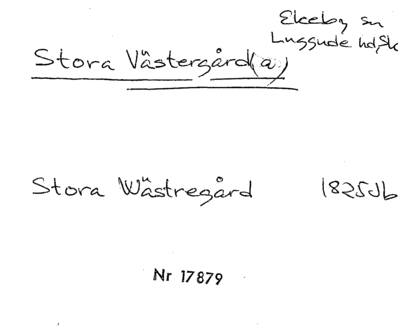 Ekeby sn
Luggude hd, Sk
Stora Västergård(a)
Stora Wästregård 1825 Jb
Nr 17879